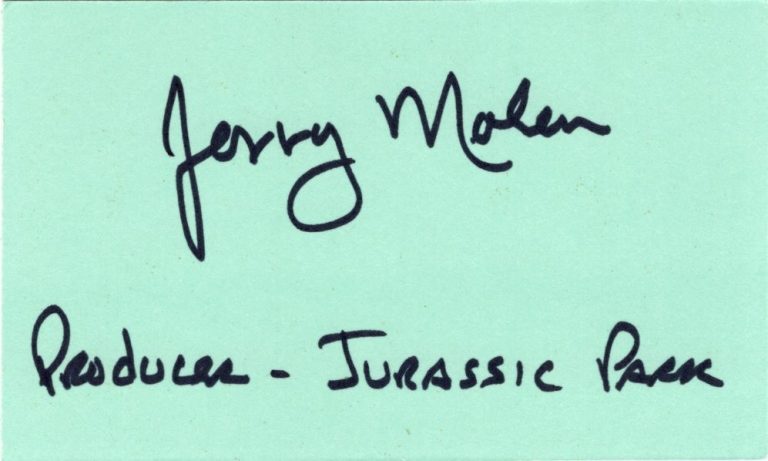 Jerry Molen
Producer - Jurassic Park